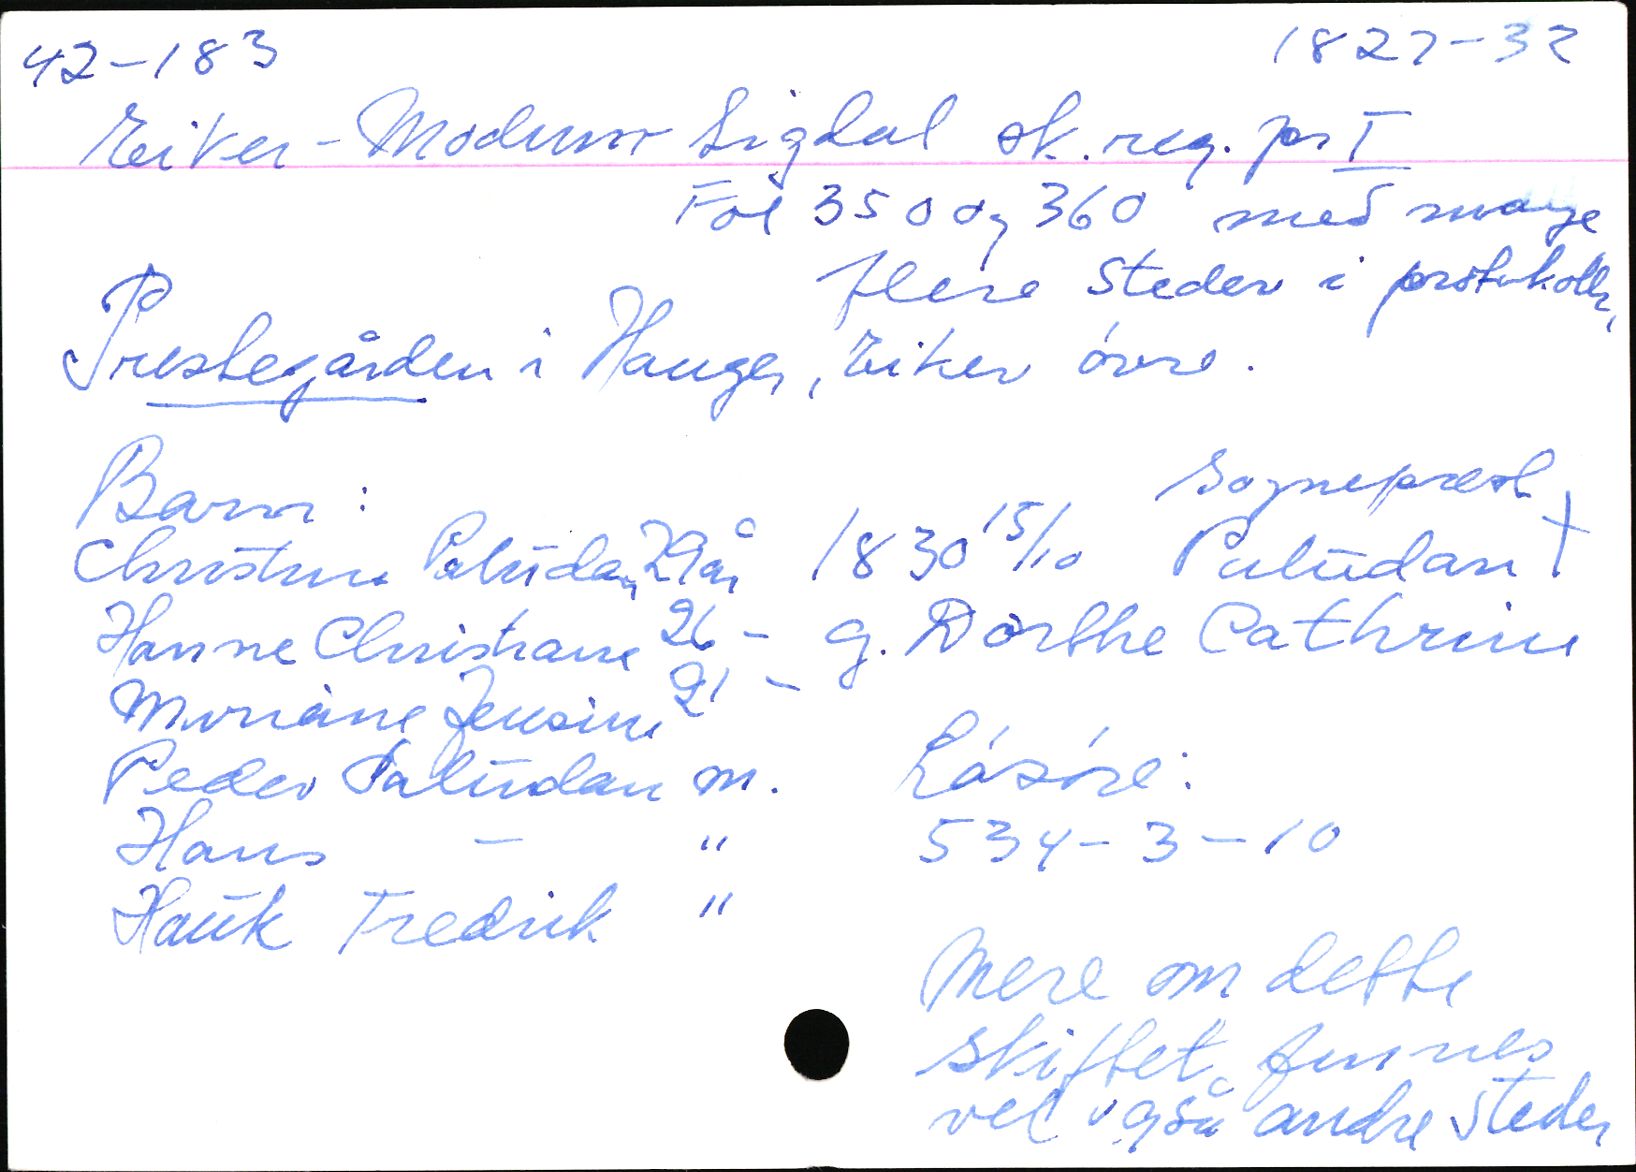 42-183 1827-32
Eiker-Modum Sigdal sk.reg.pr I
Fol 350 og 360 med mange
flere steder i protokollen,
Prestegården i Hauger, Eiker övre.
Barn: Sogneprest
Christine Paludan 29 år 1830 15/10 Paludan †
Hanne Christiane 26 - g. Dorthe Cathrine
Mariane Jensine 21 -
Peder Paludan m. Lösöre:
Hans - " 534-3-10
Hauk Fredrik "
Mere om dette
skiftet finnes
vel også andre steder